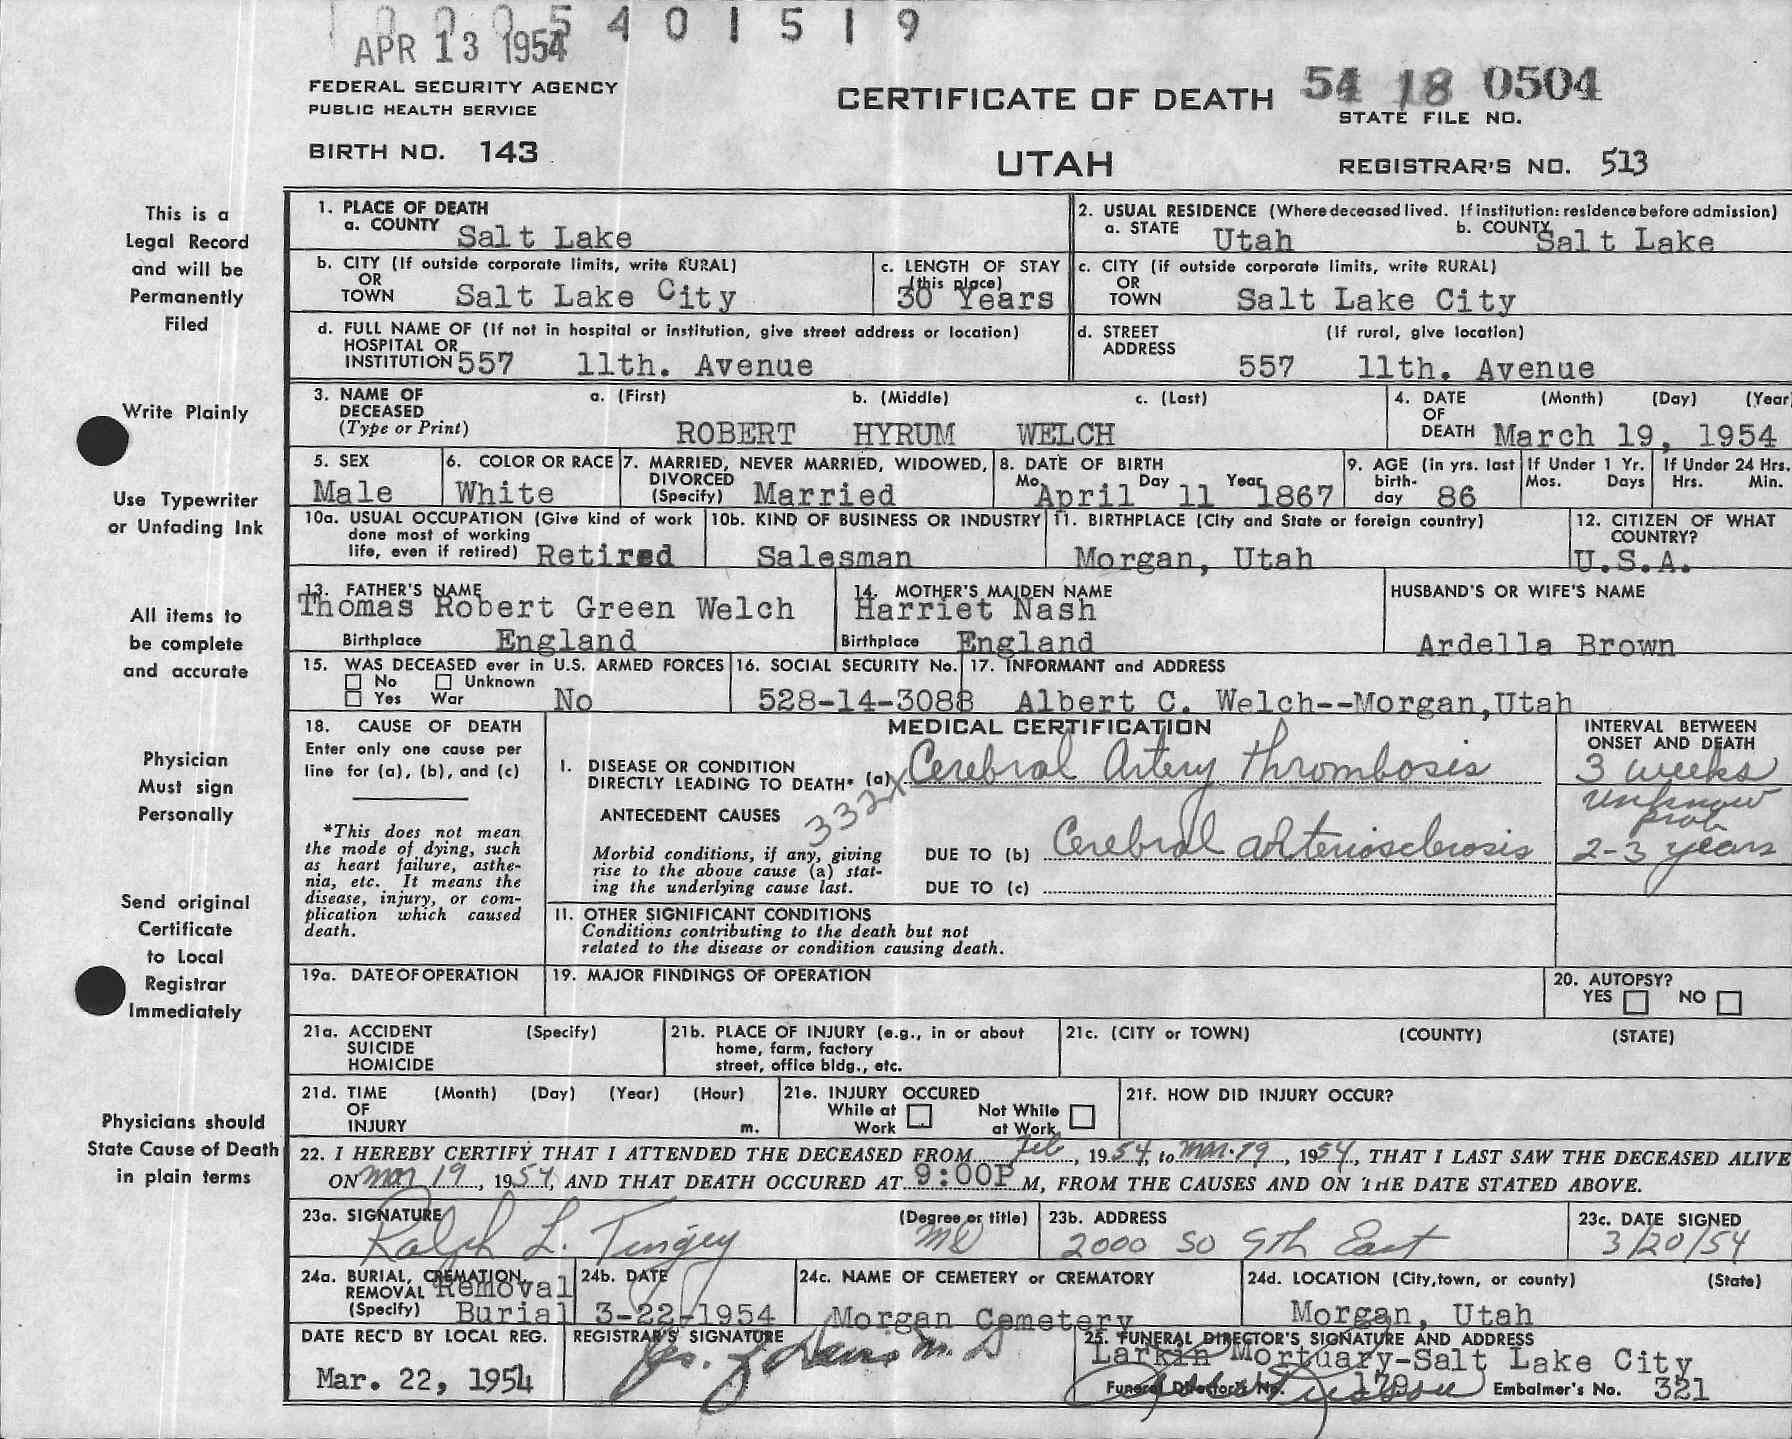 1 0 0 0 5 4 0 1 5 1 9
APR 13 1954
FEDERAL SECURITY AGENCY
PUBLIC HEALTH SERVICE
BIRTH NO. 143
CERTIFICATE OF DEATH
UTAH
54 18 0504
STATE FILE NO.
REGISTRAR'S NO. 513
This is a
Legal Record
and will be
Permanently
Filed
Write Plainly
Use Typewriter
or Unfading Ink
All items to
be complete
and accurate
Physician
Must sign
Personally
Send original
Certificate
to Local
Registrar
Immediately
Physicians should
State Cause of Death
in plain terms
1. PLACE OF DEATH
a. COUNTY Salt Lake
2. USUAL RESIDENCE (Where deceased lived. If institution: residence before admission)
a. STATE Utah b. COUNTY Salt Lake
b. CITY (If outside corporate limits, write RURAL)
OR
TOWN Salt Lake City
c. LENGTH OF STAY
(this place)
30 Years
c. CITY (if outside corporate limits, write RURAL)
OR
TOWN Salt Lake City
d. FULL NAME OF (If not in hospital or institution, give street address or location)
HOSPITAL OR
INSTITUTION 557 11th. Avenue
d. STREET (If rural, give location)
ADDRESS
557 11th. Avenue
3. NAME OF
DECEASED
(Type or Print)
a. (First) b. (Middle) c. (Last)
ROBERT HYRUM WELCH
4. DATE (Month) (Day) (Year)
OF
DEATH March 19, 1954
5. SEX
Male
6. COLOR OR RACE
White
7. MARRIED, NEVER MARRIED, WIDOWED,
DIVORCED
(Specify) Married
8. DATE OF BIRTH
Mo. Day Year
April 11 1867
9. AGE (in yrs. last
birth-
day 86
If Under 1 Yr.
Mos. Days
If Under 24 Hrs.
Hrs. Min.
10a. USUAL OCCUPATION (Give kind of work
done most of working
life, even if retired) Retired
10b. KIND OF BUSINESS OR INDUSTRY
Salesman
11. BIRTHPLACE (City and State or foreign country)
Morgan, Utah
12. CITIZEN OF WHAT
COUNTRY?
U.S.A.
13. FATHER'S NAME
Thomas Robert Green Welch
Birthplace England
14. MOTHER'S MAIDEN NAME
Harriet Nash
Birthplace England
HUSBAND'S OR WIFE'S NAME
Ardella Brown
15. WAS DECEASED ever in U.S. ARMED FORCES
No Unknown
Yes War No
16. SOCIAL SECURITY No.
528-14-3088
17. INFORMANT and ADDRESS
Albert C. Welch--Morgan,Utah
18. CAUSE OF DEATH
Enter only one cause per
line for (a), (b), and (c)
*This does not mean
the mode of dying, such
as heart failure, asthe-
nia, etc. It means the
disease, injury, or com-
plication which caused
death.
MEDICAL CERTIFICATION
I. DISEASE OR CONDITION
DIRECTLY LEADING TO DEATH* (a) Cerebral Artery Thrombosis
332X
ANTECEDENT CAUSES
Morbid conditions, if any, giving
rise to the above cause (a) stat-
ing the underlying cause last.
DUE TO (b) Cerebral arteriosclerosis
DUE TO (c)
INTERVAL BETWEEN
ONSET AND DEATH
3 weeks
unknow
prob
2-3 years
II. OTHER SIGNIFICANT CONDITIONS
Conditions contributing to the death but not
related to the disease or condition causing death.
19a. DATE OF OPERATION
19. MAJOR FINDINGS OF OPERATION
20. AUTOPSY?
YES NO
21a. ACCIDENT (Specify)
SUICIDE
HOMICIDE
21b. PLACE OF INJURY (e.g., in or about
home, farm, factory
street, office bldg., etc.
21c. (CITY or TOWN) (COUNTY) (STATE)
21d. TIME (Month) (Day) (Year) (Hour)
OF
INJURY m.
21e. INJURY OCCURED
While at Not While
Work at Work
21f. HOW DID INJURY OCCUR?
22. I HEREBY CERTIFY THAT I ATTENDED THE DECEASED FROM Feb, 1954, to Mar. 19, 1954, THAT I LAST SAW THE DECEASED ALIVE
ON Mar 19, 1954, AND THAT DEATH OCCURED AT 9:00P M, FROM THE CAUSES AND ON THE DATE STATED ABOVE.
23a. SIGNATURE (Degree or title)
Ralph L. Tingey MD
23b. ADDRESS
2000 SO 9th East
23c. DATE SIGNED
3/20/54
24a. BURIAL, CREMATION,
REMOVAL Removal
(Specify) Burial
24b. DATE
3-22-1954
24c. NAME OF CEMETERY or CREMATORY
Morgan Cemetery
24d. LOCATION (City,town, or county) (State)
Morgan, Utah
DATE REC'D BY LOCAL REG.
Mar. 22, 1954
REGISTRAR'S SIGNATURE
M. D
25. FUNERAL DIRECTOR'S SIGNATURE AND ADDRESS
Larkin Mortuary-Salt Lake City
Funeral Director's No. 179 Embalmer's No. 321